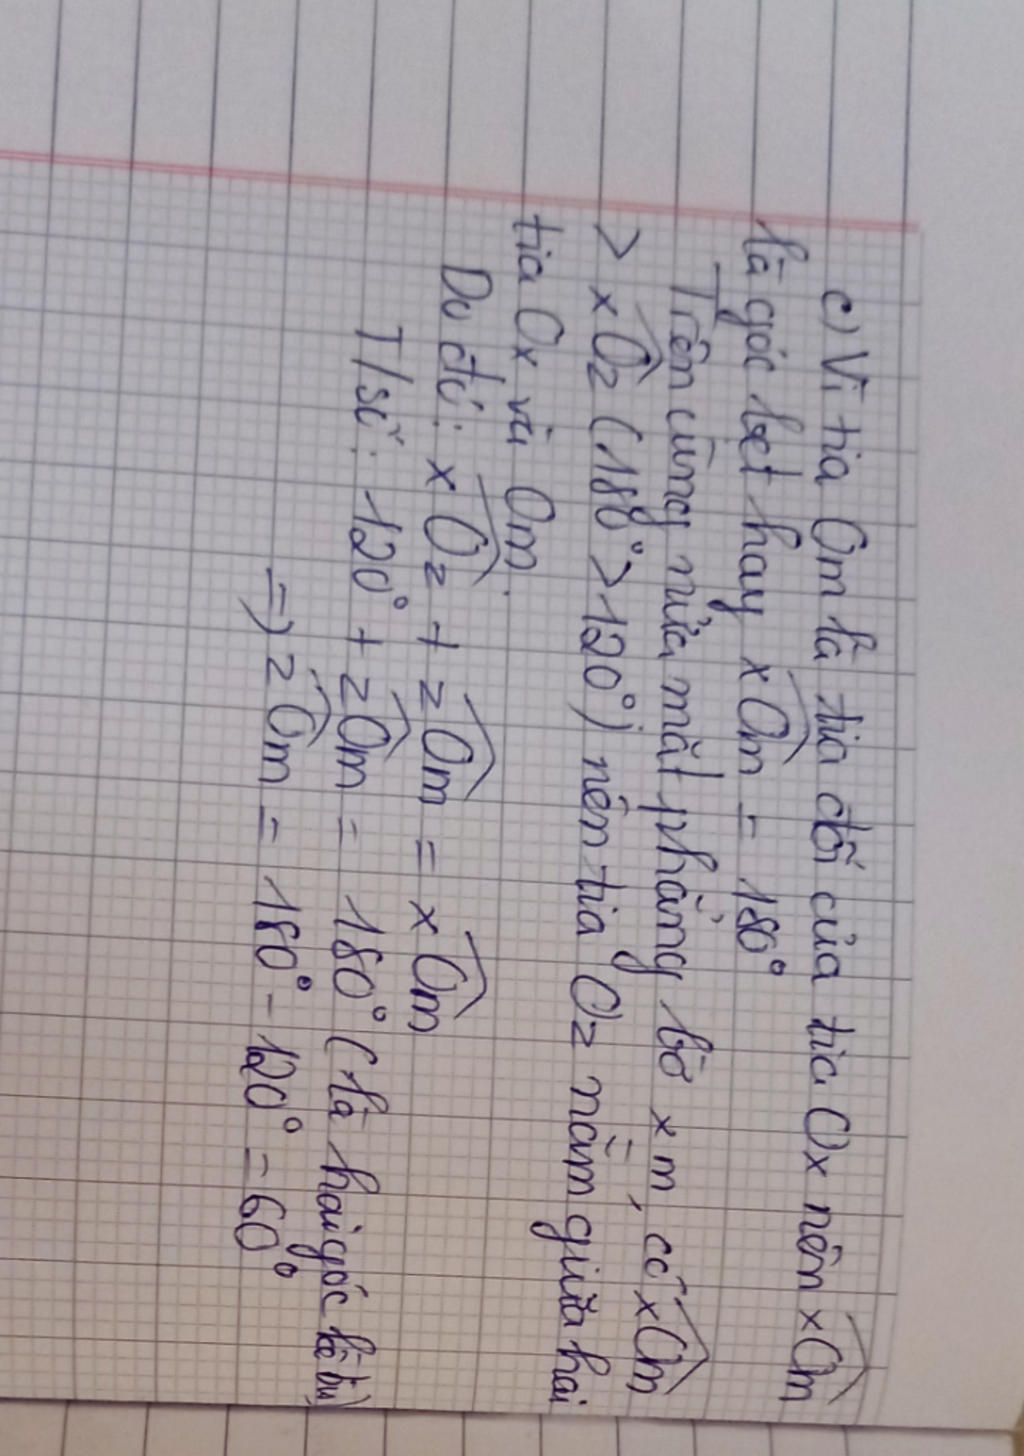 c) Vì tia Om là tia đối của tia Ox nên xOm
là góc bẹt hay xOm = 180°
Trên cùng nửa mặt phẳng bờ xm, có xOm
> xOz (180° > 120°) nên tia Oz nằm giữa hai
tia Ox và Om.
Do đó: xOz + zOm = xOm
T/số: 120° + zOm = 180° (là hai góc kề bù)
=> zOm = 180° - 120° = 60°